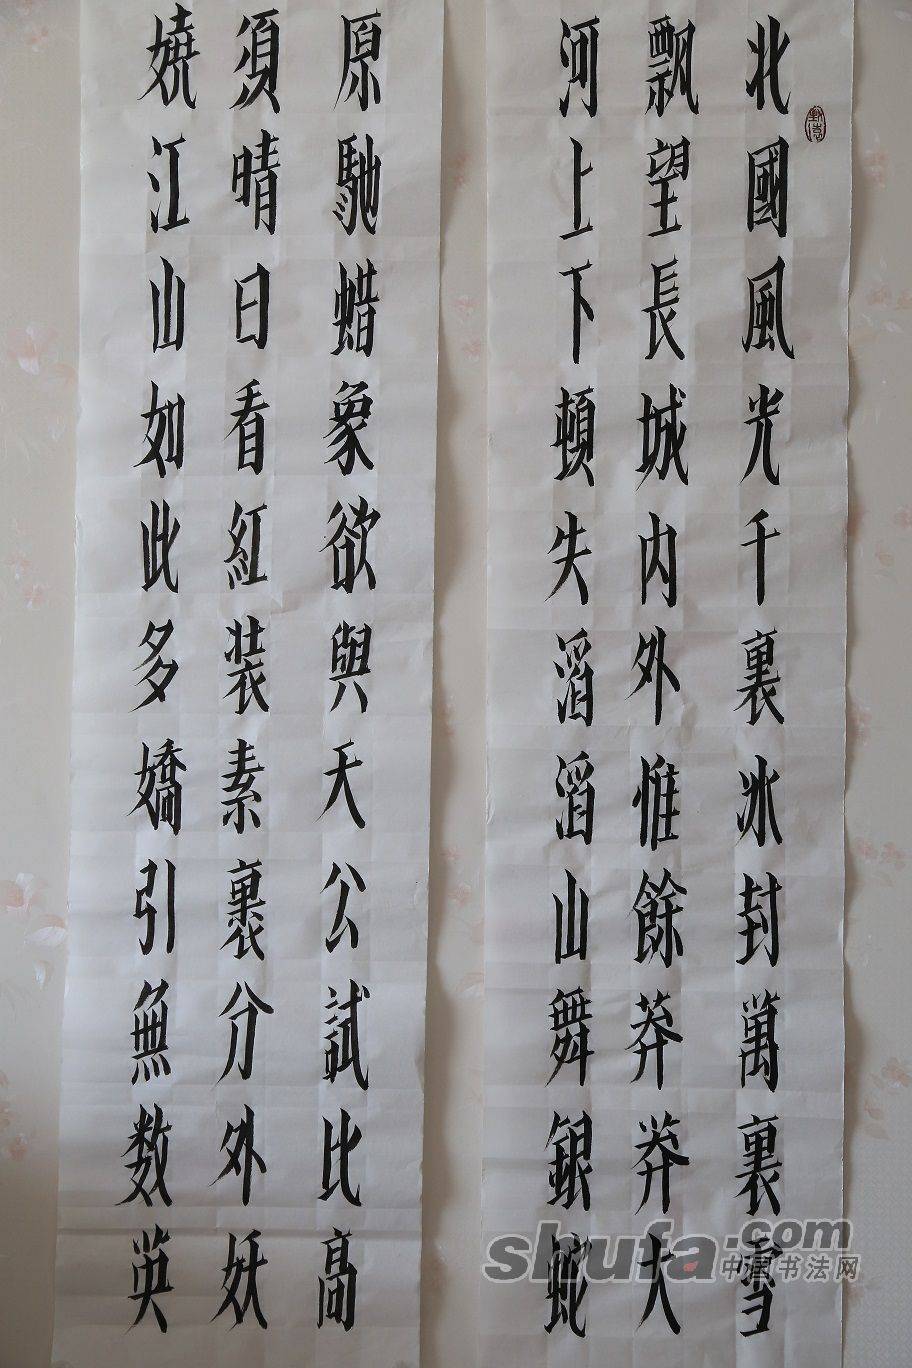 北國風光千裏冰封萬裏雪
飄望長城内外惟餘莽莽大
河上下頓失滔滔山舞銀蛇
原馳蜡象欲與天公試比高
須晴日看紅装素裹分外妖
嬈江山如此多嬌引無数英
shufa.com
中国书法网